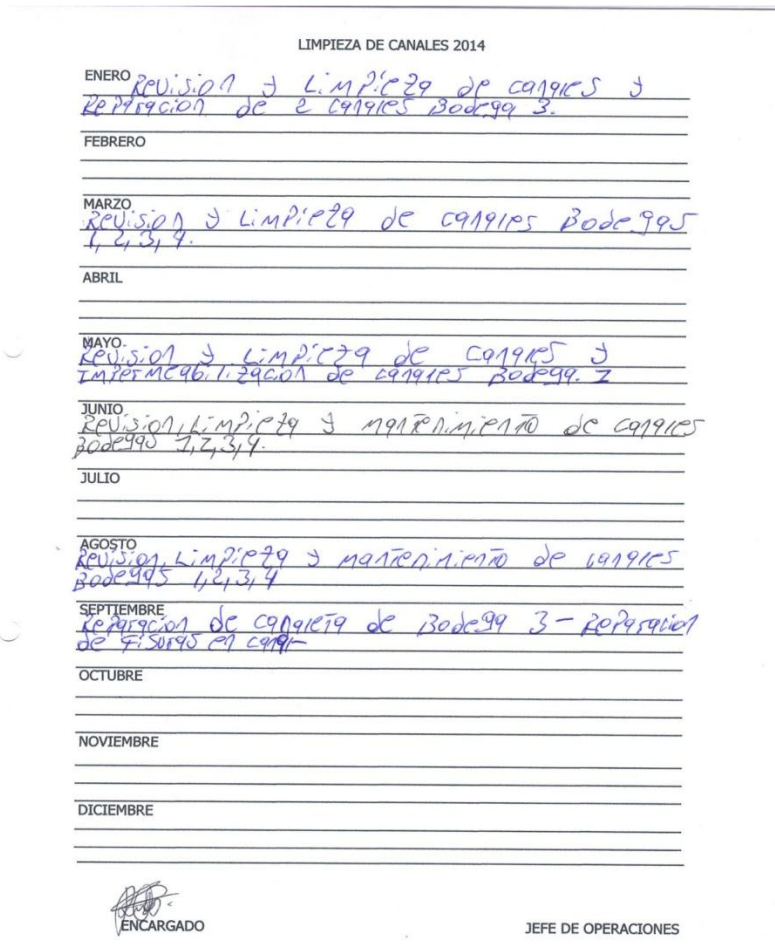 LIMPIEZA DE CANALES 2014
ENERO Revision y Limpieza de canales y
Reparacion de 2 canales Bodega 3.
FEBRERO
MARZO
Revision y Limpieza de canales Bodegas
1, 2, 3, 4.
ABRIL
MAYO
Revision y Limpieza de canales y
Impermeabilizacion de canales Bodega. 1
JUNIO
Revision, Limpieza y mantenimiento de canales
Bodegas 1, 2, 3, 4.
JULIO
AGOSTO
Revision, Limpieza y mantenimiento de canales
Bodegas 1, 2, 3, 4
SEPTIEMBRE
Reparacion de canaleta de Bodega 3 - Reparacion
de Fisuras en canal
OCTUBRE
NOVIEMBRE
DICIEMBRE
ENCARGADO
JEFE DE OPERACIONES